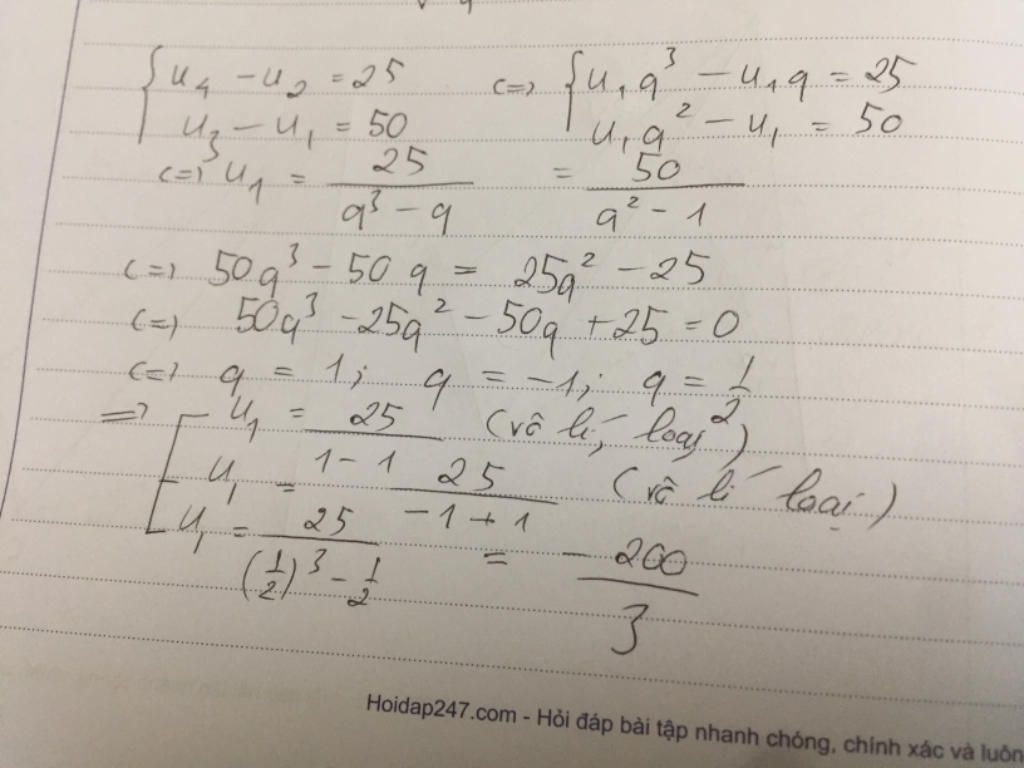 { u₄ - u₂ = 25 (=) { u₁q³ - u₁q = 25
u₃ - u₁ = 50 u₁q² - u₁ = 50
(=) u₁ = 25/(q³ - q) = 50/(q² - 1)
(=) 50q³ - 50q = 25q² - 25
(=) 50q³ - 25q² - 50q + 25 = 0
(=) q = 1; q = -1; q = 1/2
=> [ u₁ = 25/(1 - 1) (vô lí, loại)
u₁ = 25/(-1 + 1) (vô lí loại)
u₁ = 25/((1/2)³ - 1/2) = -200/3
Hoidap247.com - Hỏi đáp bài tập nhanh chóng, chính xác và luôn